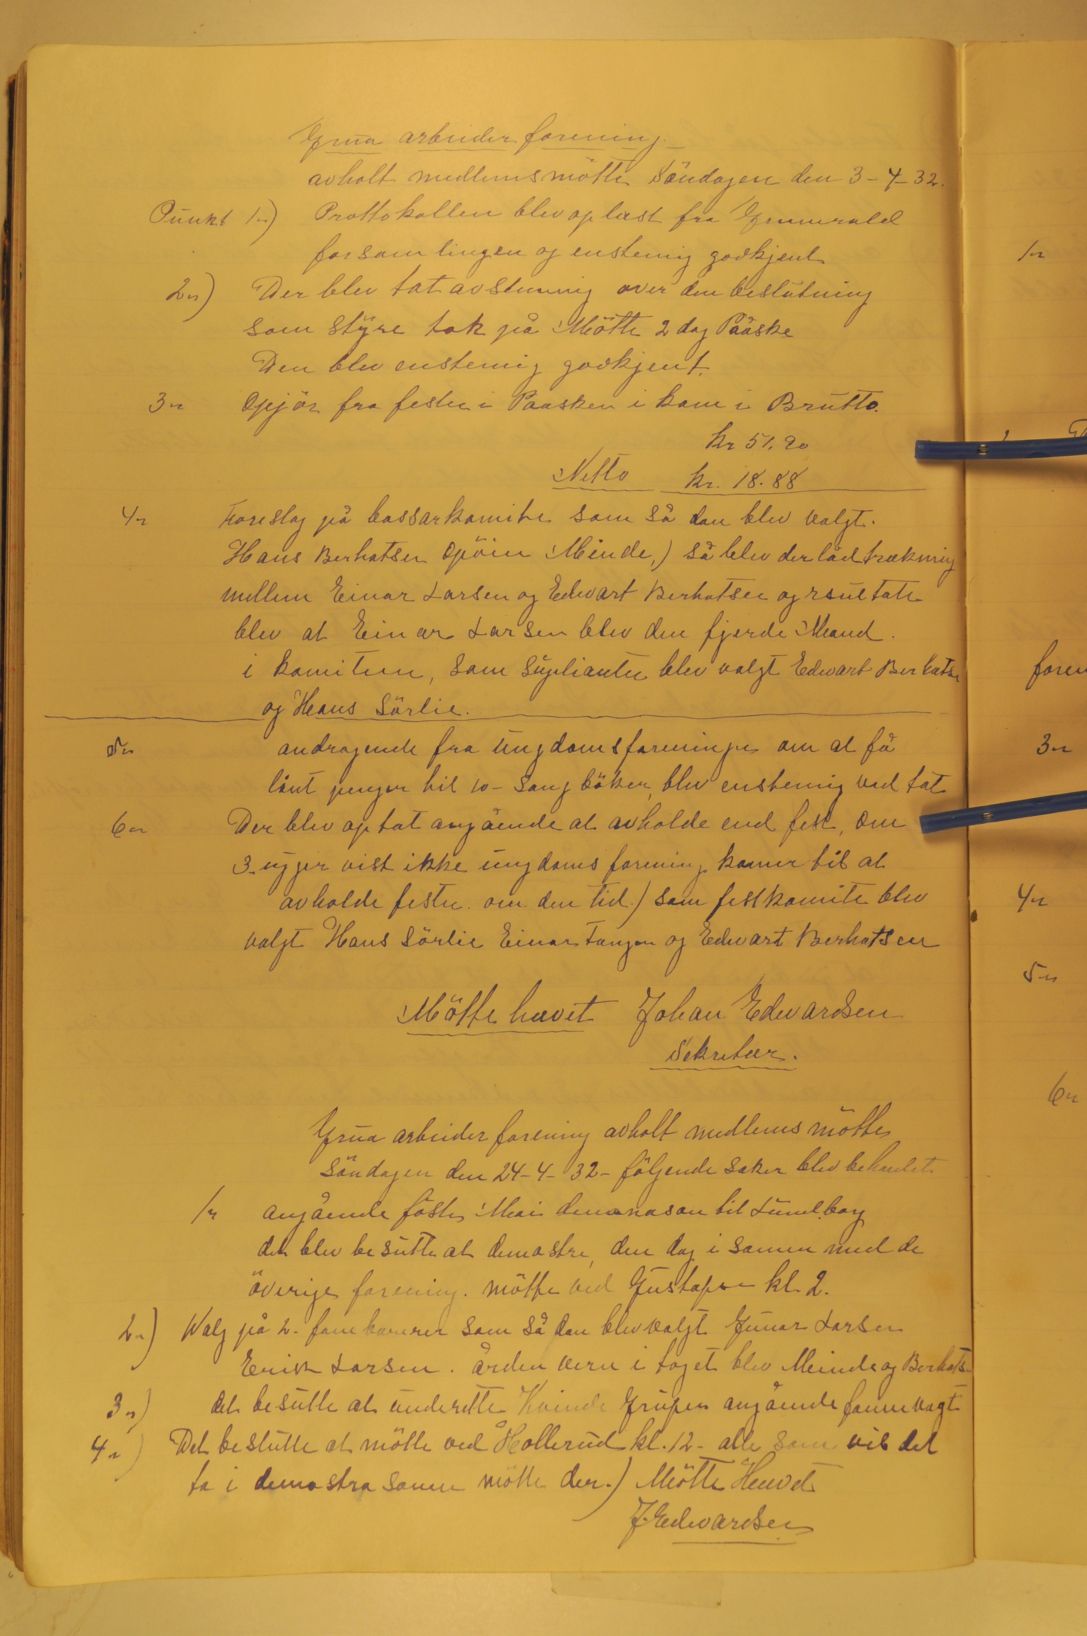 Grua arbeider forening.
avholt medlemsmötte Söndagen den 3-4-32.
Punkt 1-) Prottokollen blev oplæst fra Generald
forsamlingen og enstemig godkjent
2-) Der blev tat avstemnig over den beslutning
som styre tok på Mötte 2 dag Paaske
Den blev enstemig godkjent.
3- Opjör fra festen i Paasken i kom i Brutto.
kr 51.90
Netto kr. 18.88
4- Foreslag på bassarkomite som så dan blev valgt.
Hans Berhatsen Minde,) så blev der lådtrækning
mellem Einar Larsen og Edvart Berhatsen og rsultate
blev at Einar Larsen blev den fjerde Mand.
i komiteen, som supliante blev valgt Edvart Berhatse
og Hans Sörlie.
5- andragende fra ungdomsforeningen om at få
lånt penger til 10- Sang böker, blev enstemig ved tat
6- Der blev optat angående at avholde end fest, om
3 uger vist ikke ungdoms forening komer til at
avholde feste om den tid.) som festkomite blev
valgt Hans Sörlie Einar Tangen og Edvart Berhatsen
Mötte hævet Johan Edvardsen
Sekretær.
Grua arbeider forening avholt medlems mötte
Söndagen den 24-4-32- fölgende saker blev behandlet
1- angående föste Mai til
det blev besutte at demostre, den dag i samen med de
överige forening. mötte ved kl. 2.
2-) Valg på 2. fane bærer som så dan blev valgt Gunar Larsen
Erik Larsen. ården vern i toget blev Meinde og Berhats
3-) det besutte at underette Kvinde Grupen angående fannevagt
4-) Det beslutte at mötte ved Hollerud kl. 12- alle som vil del
ta i demostra mötte der.) Mötte Hævet
J. Edvardsen
1-
foren
3-
4-
5-
6-